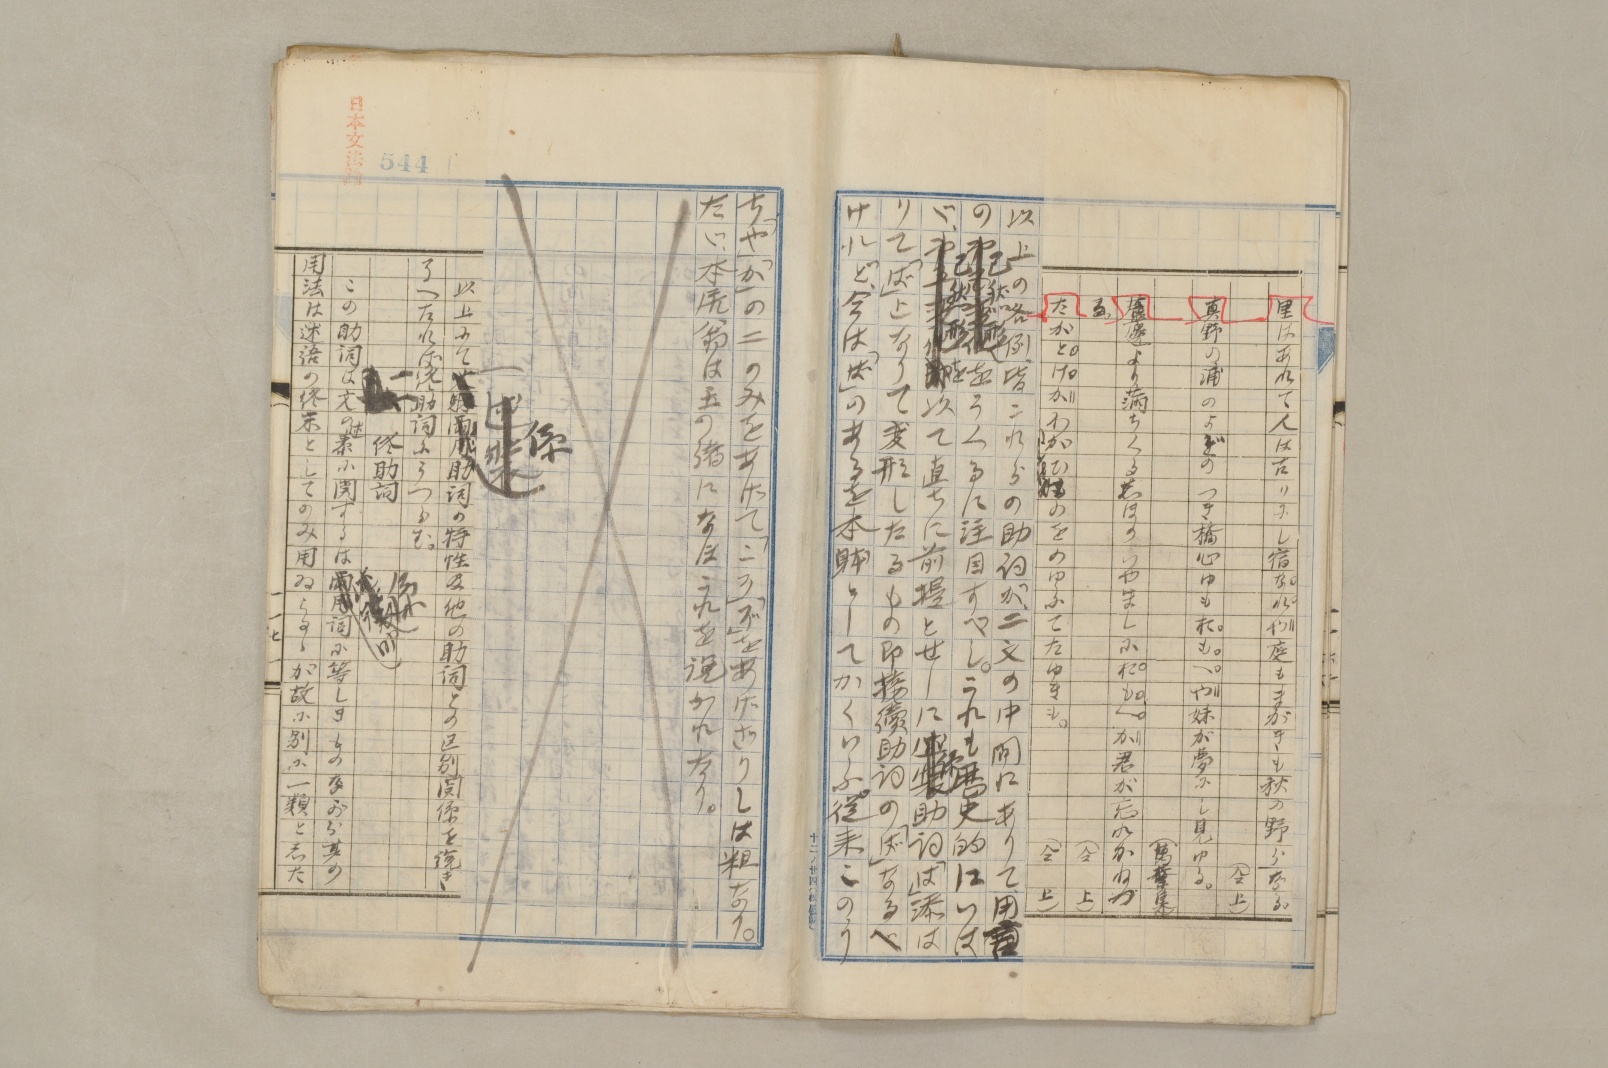 里はあれて人は古りにし宿なれや庭もまがきも秋の野らなる
(仝上)
真野の浦のよどのつぎ橋心ゆもおもへや妹が夢にし見ゆる。
(萬葉集
蘆邊より満ちくるしほのいやましにおもへか君が忘れかねつ
る
(仝上)
たがとけかわがひものをのゆふてたゆきも。
(仝上)
以上の各例、皆これらの助詞が、二文の中間にありて、用言
の已然形をうくるに注目すべし。これも歴史的にいは
ゞ、已然形を以て直ちに前提とせしに係助詞「は」添は
りて「ば」となりて変形したるもの即接續助詞の「ば」なるべ
けれど、今は「ば」のあるを本躰としてかくいふ。従来このう
ち「や」「か」の二のみをあげて「こそ」「ぞ」をあげざりしは粗なり。
たゞ、本居翁は玉の緒になほこれを説かれたり。
日本文法論
544
係
以上にて助詞の特性及他の助詞との区別関係を説き
了へたれば終助詞にうつらむ。
終助詞
この助詞は文の述素に関するは係助詞に等しきものながら其の
用法は述語の終末としてのみ用ゐらるゝが故に別に一類と志た